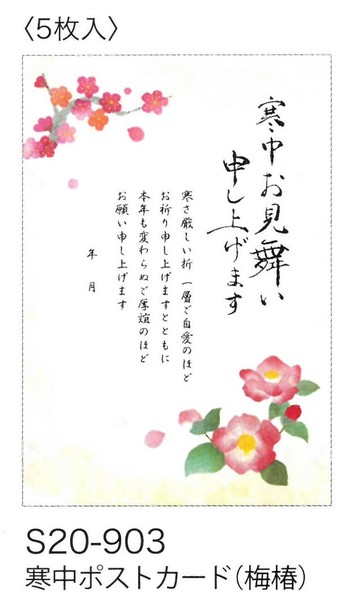 〈5枚入〉
寒中お見舞い
申し上げます
寒さ厳しい折 一層ご自愛のほど
お祈り申し上げますとともに
本年も変わらぬご厚誼のほど
お願い申し上げます
年 月
S20-903
寒中ポストカード(梅椿)